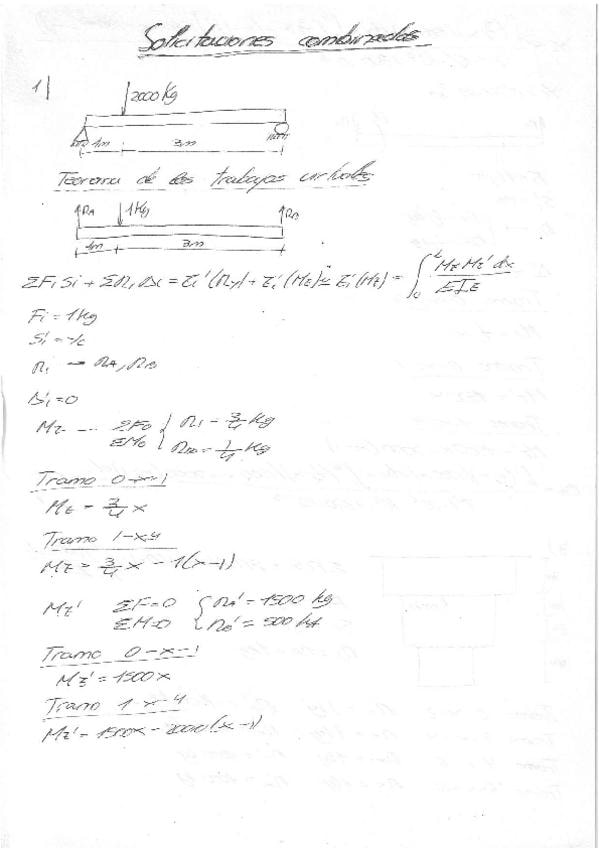 Solicitaciones combinadas
1)
2000 Kg
1m 3m
Teorema de los trabajos virtuales
RA 1Kg RB
1m 3m
ΣFi Si + ΣRi Δi = Ti'(Ry) + Ti'(Mz) ≃ Ti'(Mz) = ∫₀ᴸ Mz Mz' dx / E Iz
Fi = 1 Kg
Ri → RA, RB
Δi = 0
Mz --- ΣF=0 { R1 - 3/4 Kg
ΣM=0 RB = 1/4 Kg
Tramo 0-x-1
Mz = 3/4 x
Tramo 1-x-4
Mz = 3/4 x - 1(x-1)
Mz' ΣF=0 { RA' = 1500 kg
ΣM=0 RB' = 500 kg
Tramo 0-x-1
Mz' = 1500x
Tramo 1-x-4
Mz' = 1500x - 2000(x-1)